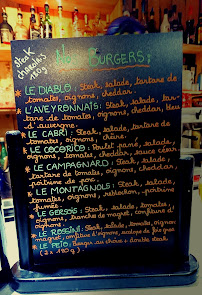 Steak
charolais
180g
BURGERS :
* LE DIABLO : Steak, salade, tartare de
tomates, oignons, cheddar.
* L'AVEYRONNAIS : Steak, salade, tar-
tare de tomates, oignons, cheddar, bleu
d'auvergne.
* LE CABRI : Steak, salade, tartare de
tomates, oignons, chèvre.
* LE COCORICO : Poulet pané, salade,
oignons, tomates, cheddar, sauce césar.
* LE CAMPAGNARD : Steak, salade,
tartare de tomates, oignons, cheddar,
poitrine de porc.
* LE MONTAGNOLS : Steak, salade,
tomates, oignons, reblochon, poitrine
fumée.
* LE GERSOIS : Steak, salade, tomates,
oignons, tranches de magret, confiture d'
oignons.
* LE ROSSINI : Steak, salade, tomates,
magret, confiture d'oignons, escalope de foie gras
* LE PÉÏO : Burger au choix + double steak
(2 x 180g).